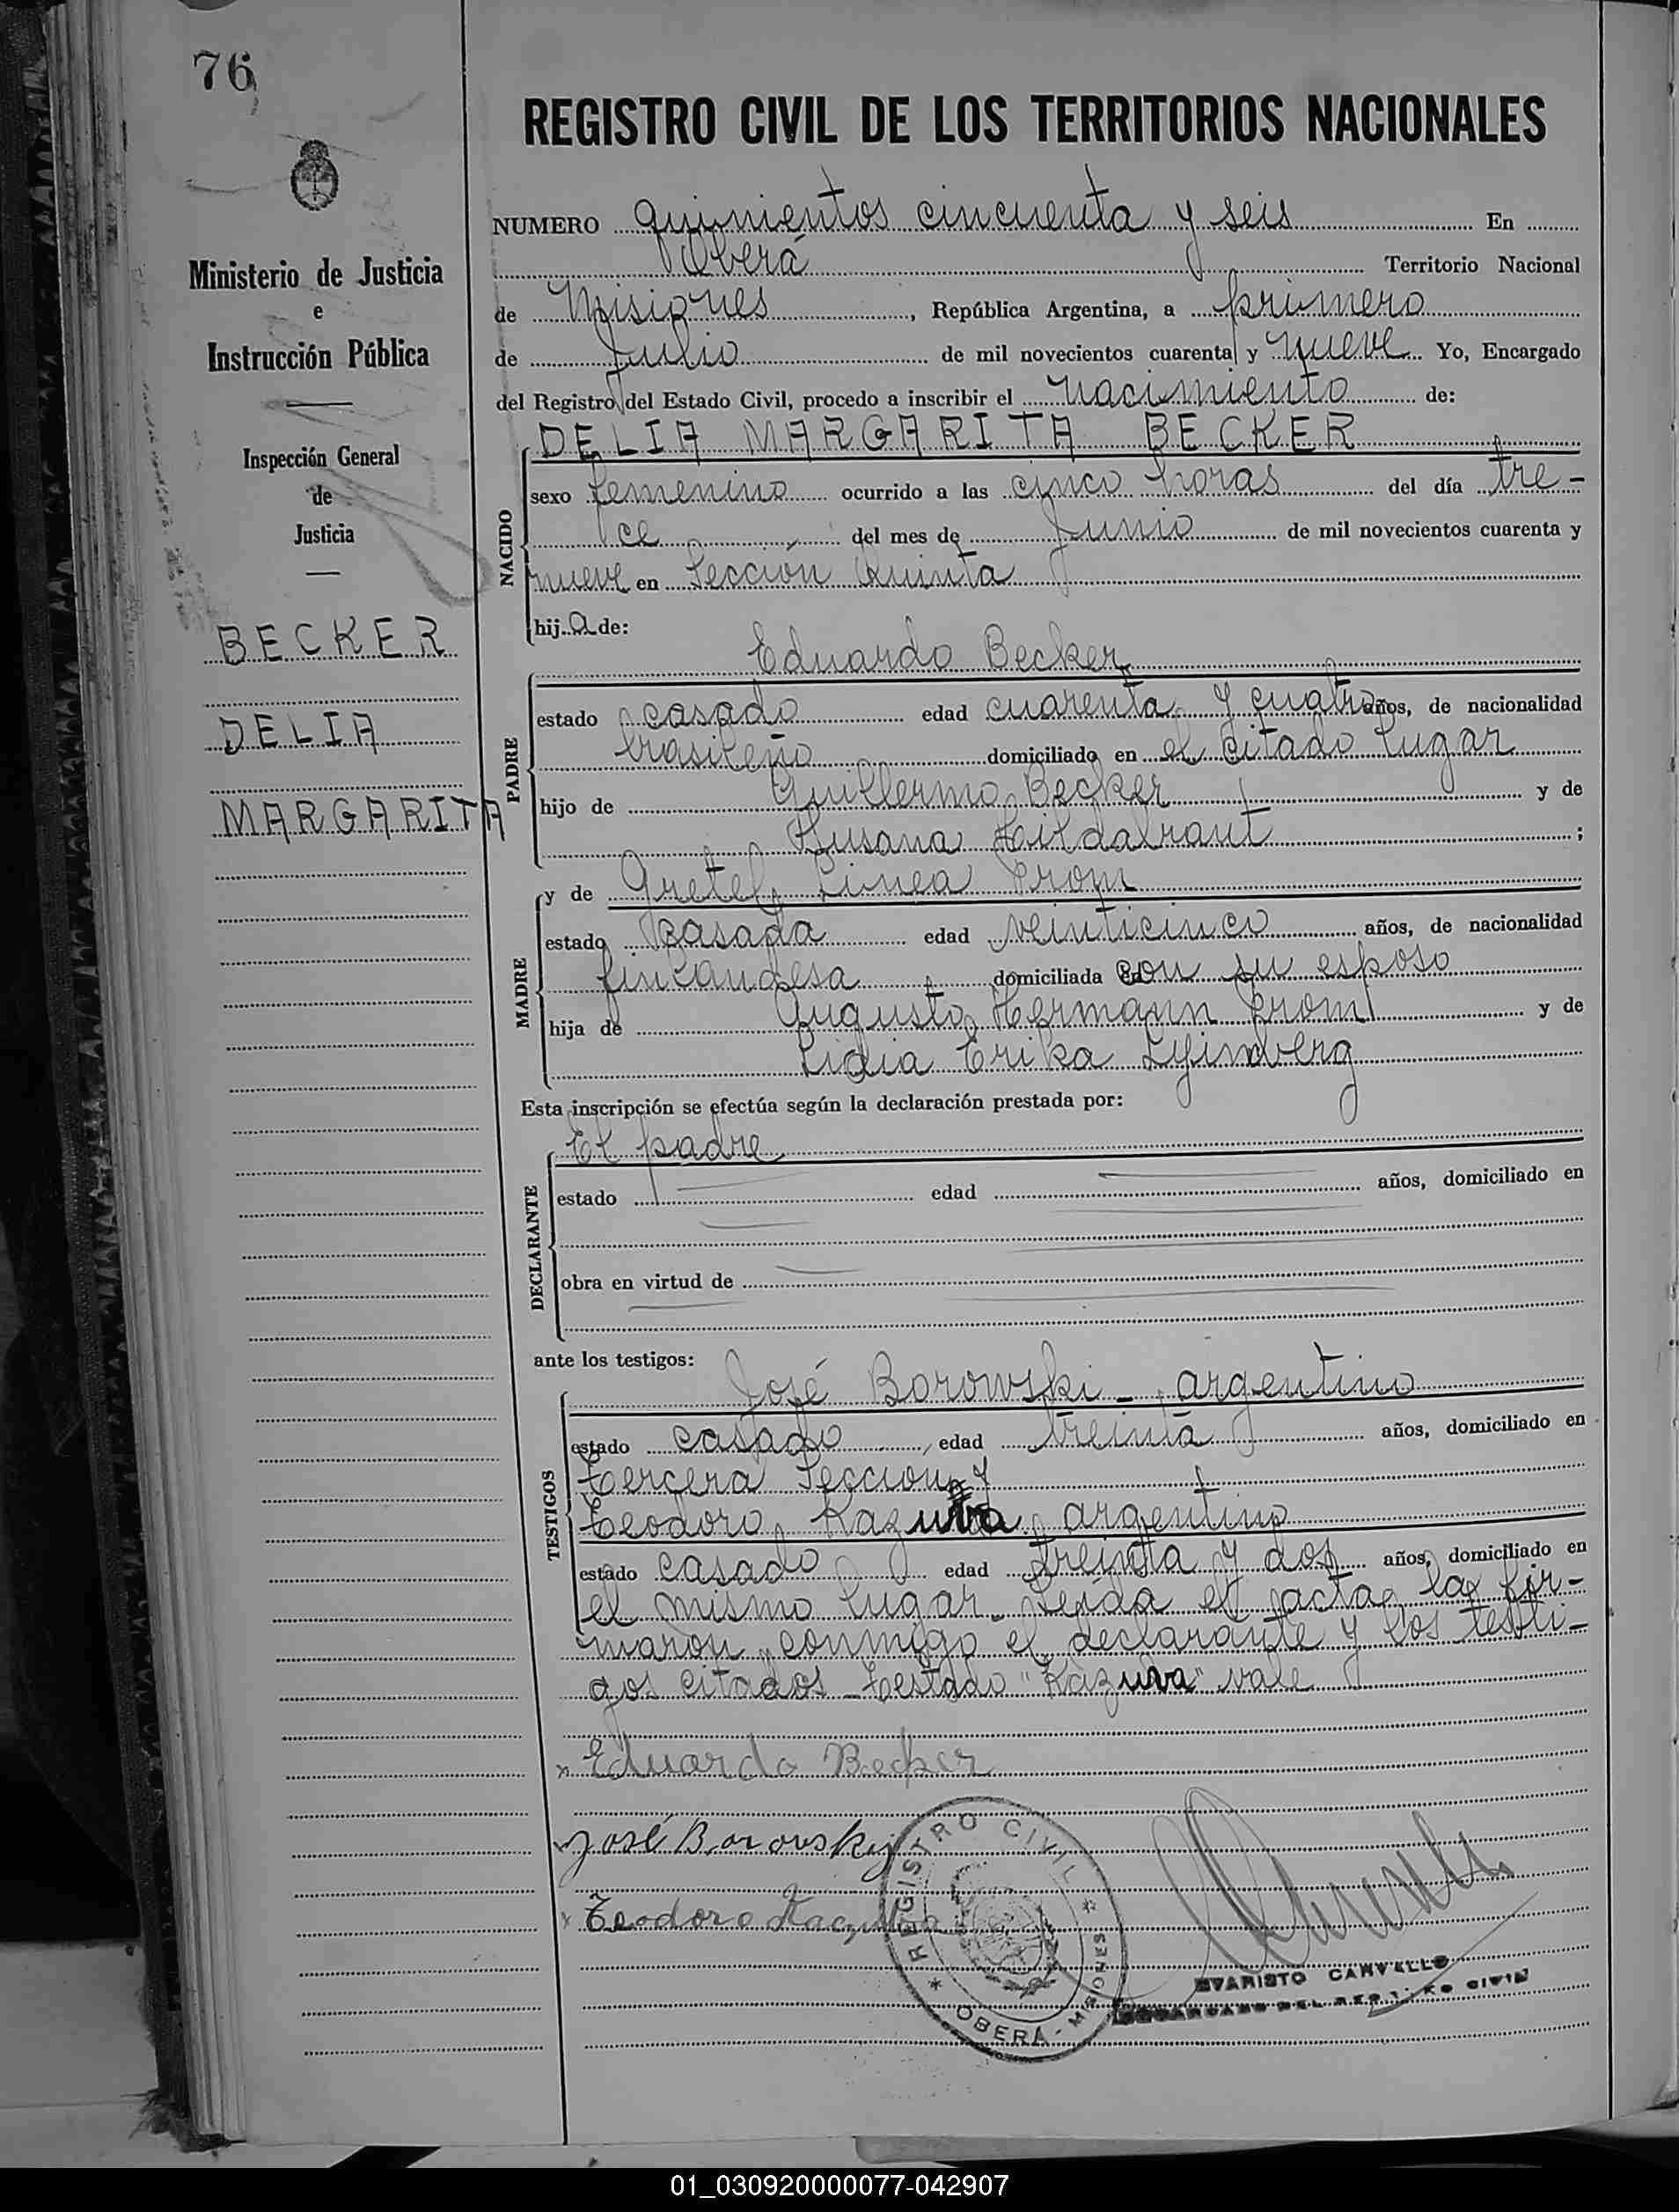 76
REGISTRO CIVIL DE LOS TERRITORIOS NACIONALES
Ministerio de Justicia
e
Instrucción Pública
Inspección General
de
Justicia
BECKER
DELIA
MARGARITA
NUMERO quinientos cincuenta y seis En
Oberá Territorio Nacional
de Misiones, República Argentina, a primero
de Julio de mil novecientos cuarenta y nueve Yo, Encargado
del Registro del Estado Civil, procedo a inscribir el nacimiento de:
DELIA MARGARITA BECKER
NACIDO
sexo femenino ocurrido a las cinco horas del día tre-
ce del mes de Junio de mil novecientos cuarenta y
nueve en Sección Quinta
hija de:
Eduardo Becker
PADRE
estado casado edad cuarenta y cuatro años, de nacionalidad
brasileño domiciliado en el citado lugar
hijo de Guillermo Becker y de
Susana Hildabraut;
MADRE
y de Gretel Linea Prom
estado casada edad veinticinco años, de nacionalidad
finlandesa domiciliada con su esposo
hija de Augusto Hermann Prom y de
Lidia Erika
Esta inscripción se efectúa según la declaración prestada por:
El padre
DECLARANTE
estado edad años, domiciliado en
obra en virtud de
ante los testigos:
José Borowski - argentino
TESTIGOS
estado casado, edad treinta años, domiciliado en
tercera Sección y
Teodoro Kazuva argentino
estado casado edad treinta y dos años, domiciliado en
el mismo lugar. Leída el acta, la fir-
maron conmigo el declarante y los testi-
gos citados - Testado "Kazuva" vale
x Eduardo Becker
José Borovski
x Teodoro
REGISTRO CIVIL
* OBERÁ - MISIONES *
EVARISTO CARVALLO
ENCARGADO DEL REGISTRO CIVIL
01_030920000077-042907